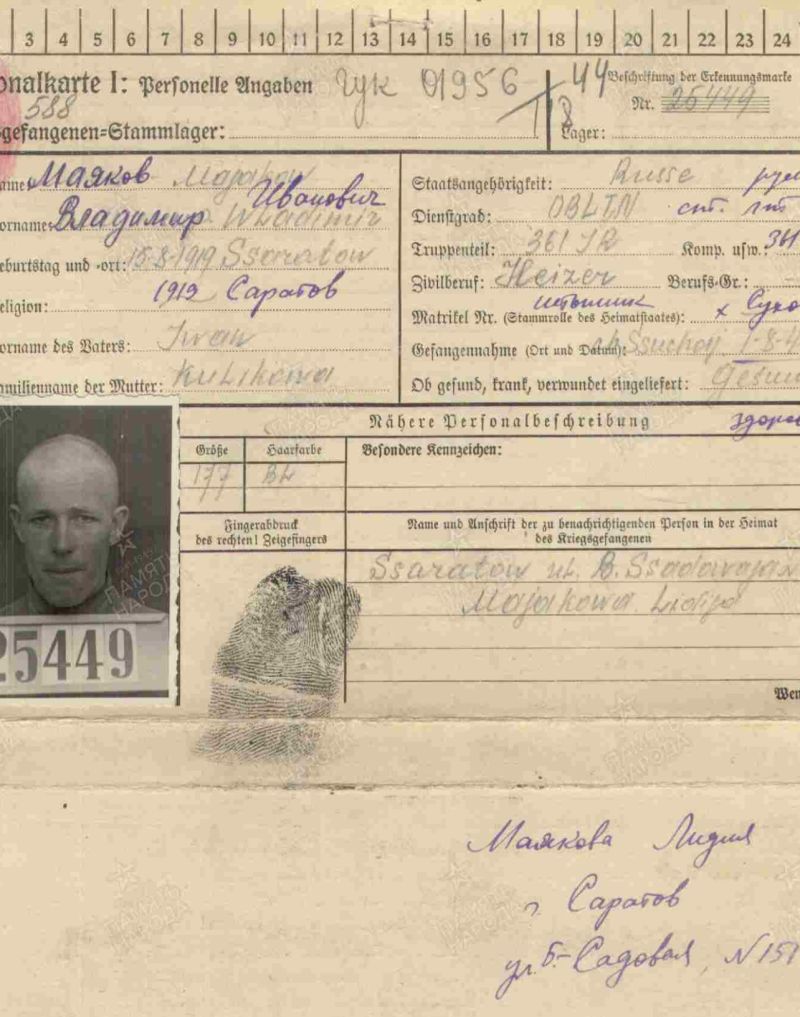 3 4 5 6 7 8 9 10 11 12 13 14 15 16 17 18 19 20 21 22 23 24
onalkarte I: Personelle Angaben
01956
44
Beschriftung der Erkennungsmarke
588
Nr. 25449
gefangenen=Stammlager:
Lager:
ame: Маяков Majakow
Иванович
orname: Владимир Wladimir
eburtstag und =ort: 15-8-1919 Ssaratow
1919 Саратов
eligion:
orname des Vaters: Iwan
amilienname der Mutter: Kulikowa
Staatsangehörigkeit: Russe
Dienstgrad: OBLTN
Truppenteil: 361 IR Komp. usw.: 361
Zivilberuf: Heizer Berufs=Gr.:
Matrikel Nr. (Stammrolle des Heimatstaates):
Gefangennahme (Ort und Datum): Ssuchoj 1-8-4
Ob gesund, krank, verwundet eingeliefert: Gesun
Nähere Personalbeschreibung
здоро
Größe Haarfarbe Besondere Kennzeichen:
177
Fingerabdruck
des rechten! Zeigefingers
Name und Anschrift der zu benachrichtigenden Person in der Heimat
des Kriegsgefangenen
Ssaratow ul. B. Ssadowaja
Majakowa Lidija
25449
Wen
ПАМЯТЬ
НАРОДА
Маякова Лидия
г Саратов
ул. Б-Садовая, N 151